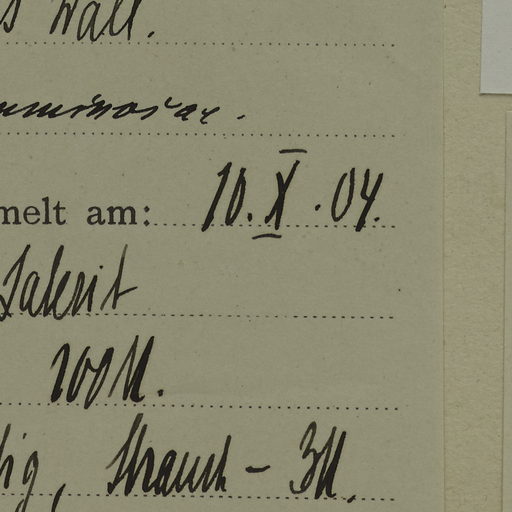 s Wall.
uminosae.
melt am: 10. X. 04.
Laterit
200 M.
ig, Strauch - 3 M.